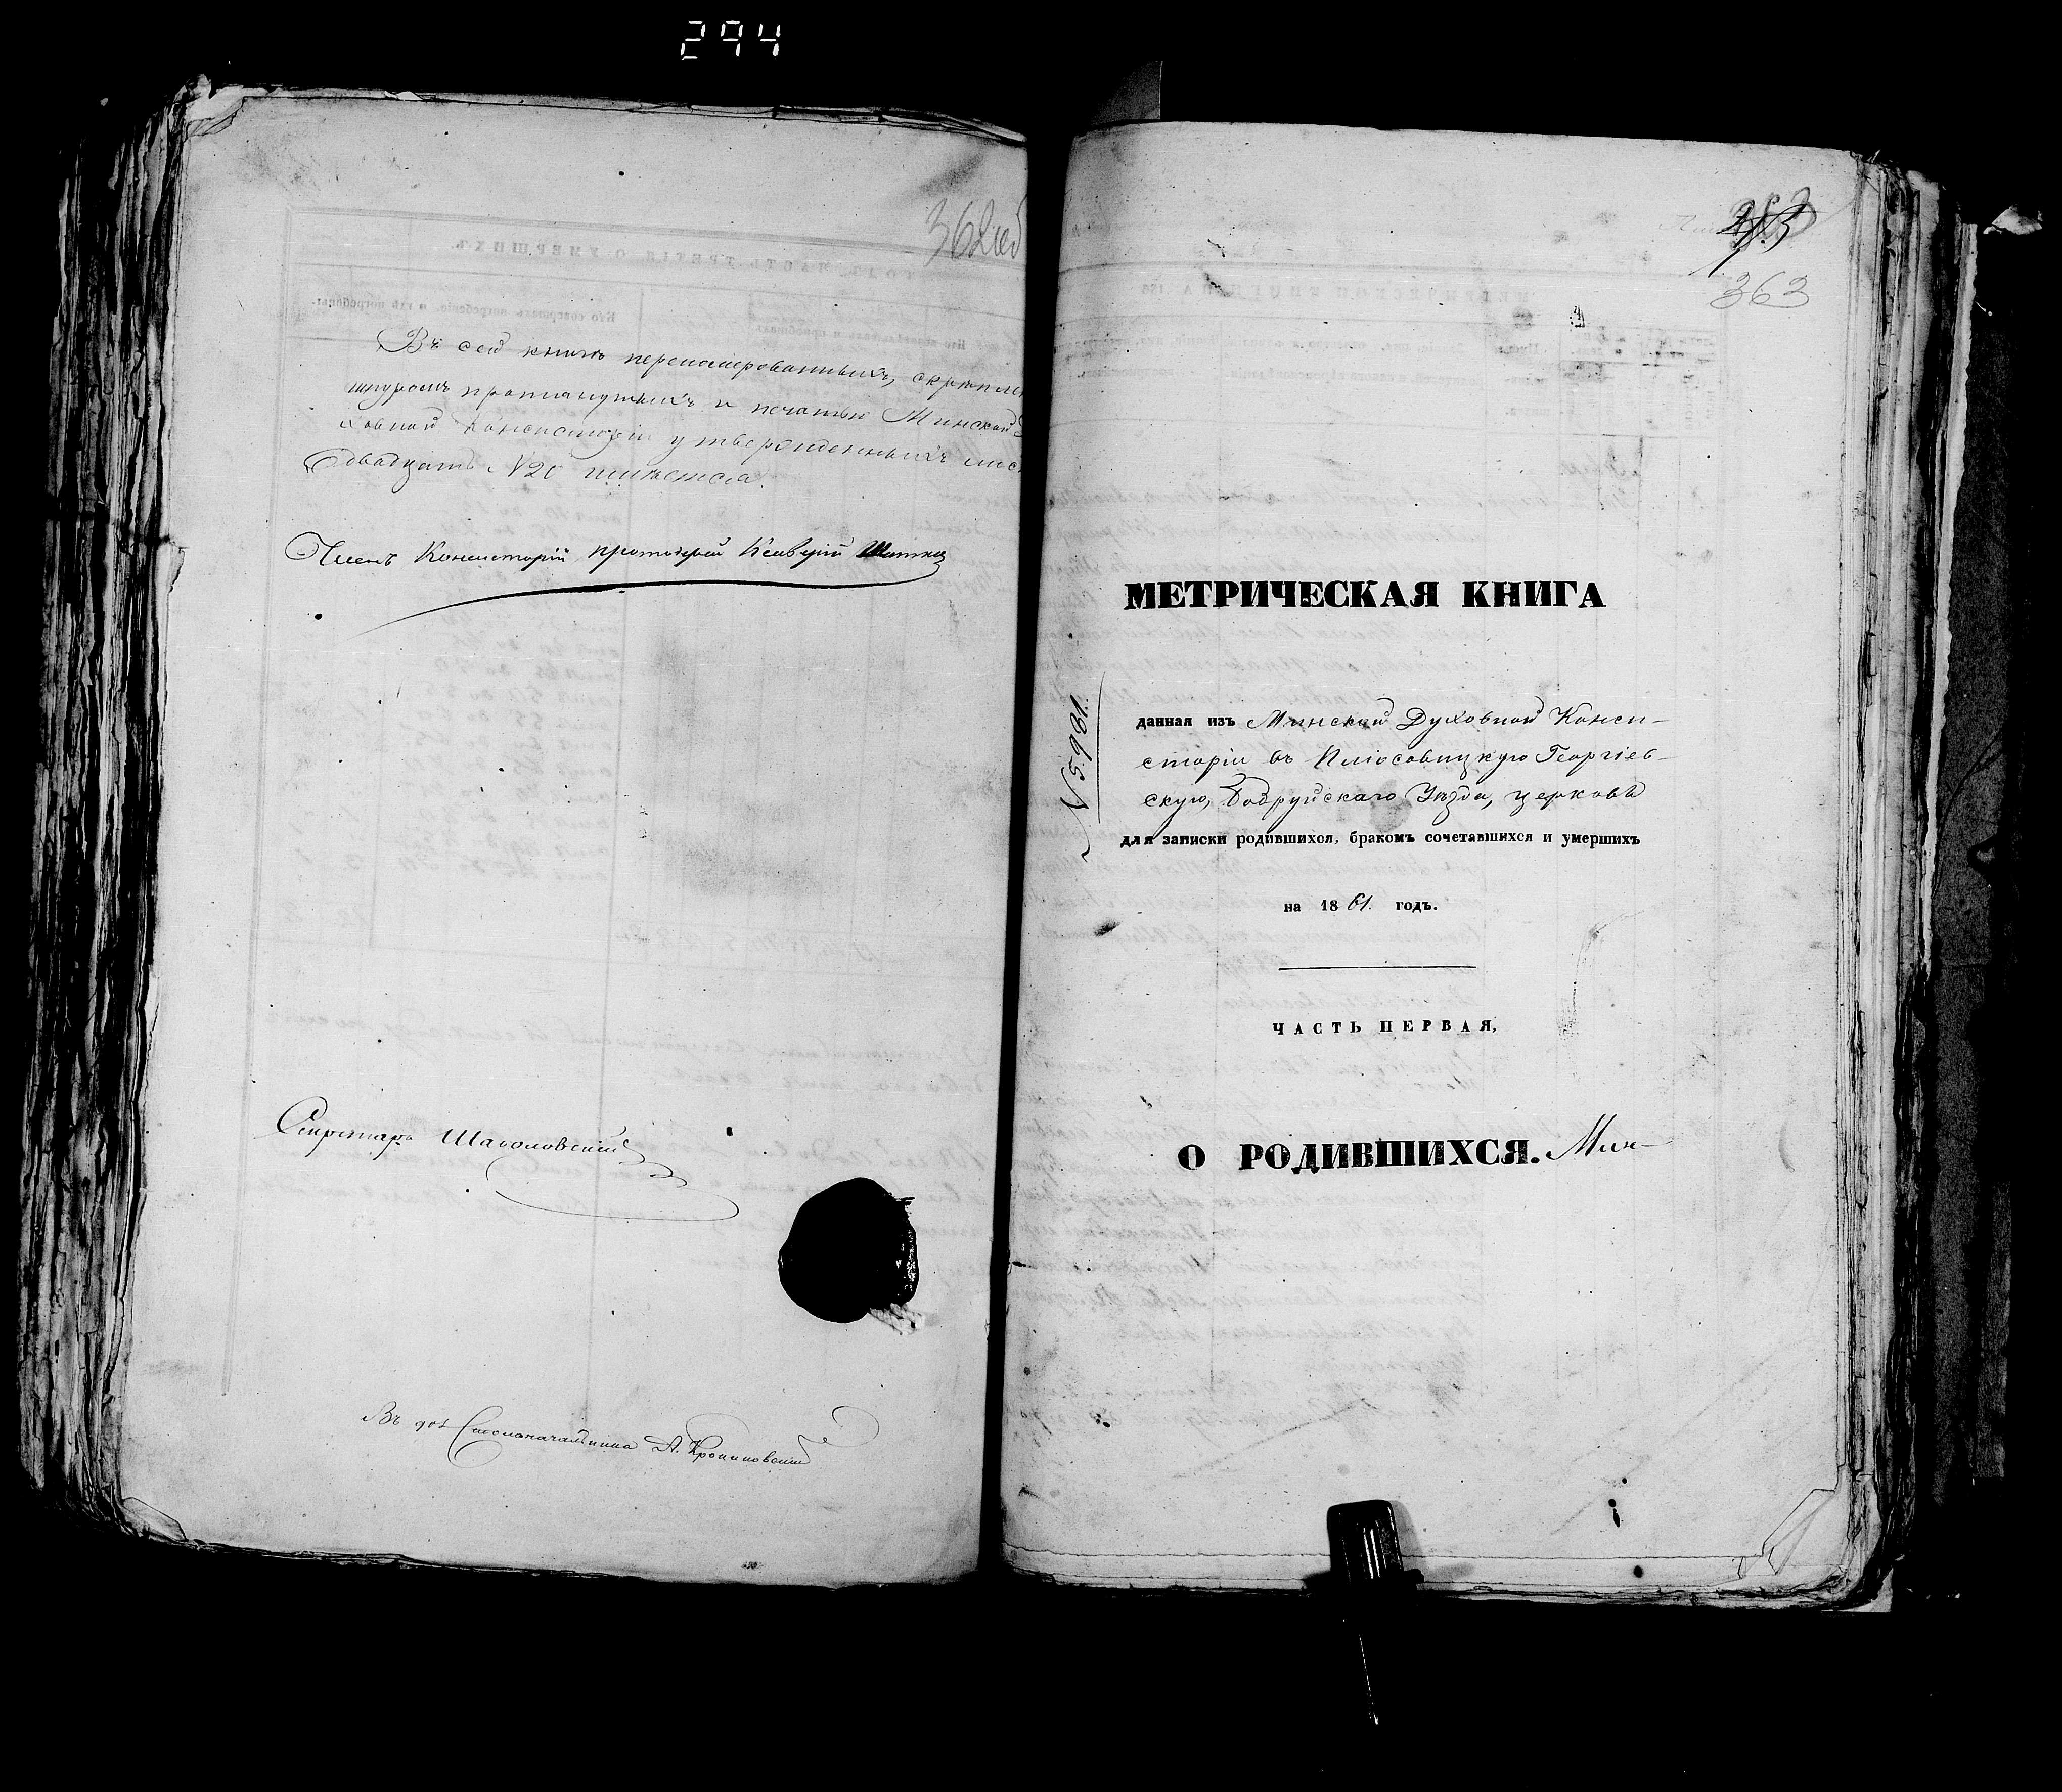 294
362об
Въ сей книгѣ переномерованныхъ, скрѣплен
шнуромъ протянутыхъ и печатью Минской
ховной Консисторіи утвержденныхъ лис
Двадцать N 20 имѣется.
Членъ Консисторіи протоіерей
Секретарь
Въ дол. Столоначальника А.
363
МЕТРИЧЕСКАЯ КНИГА
N 5.961.
данная изъ Минской Духовной Конси-
сторіи въ Плюсовицкую Георгіев-
скую, Бобруйскаго Уѣзда, церковь
для записки родившихся, бракомъ сочетавшихся и умершихъ
на 1861. годъ.
ЧАСТЬ ПЕРВАЯ,
О РОДИВШИХСЯ.